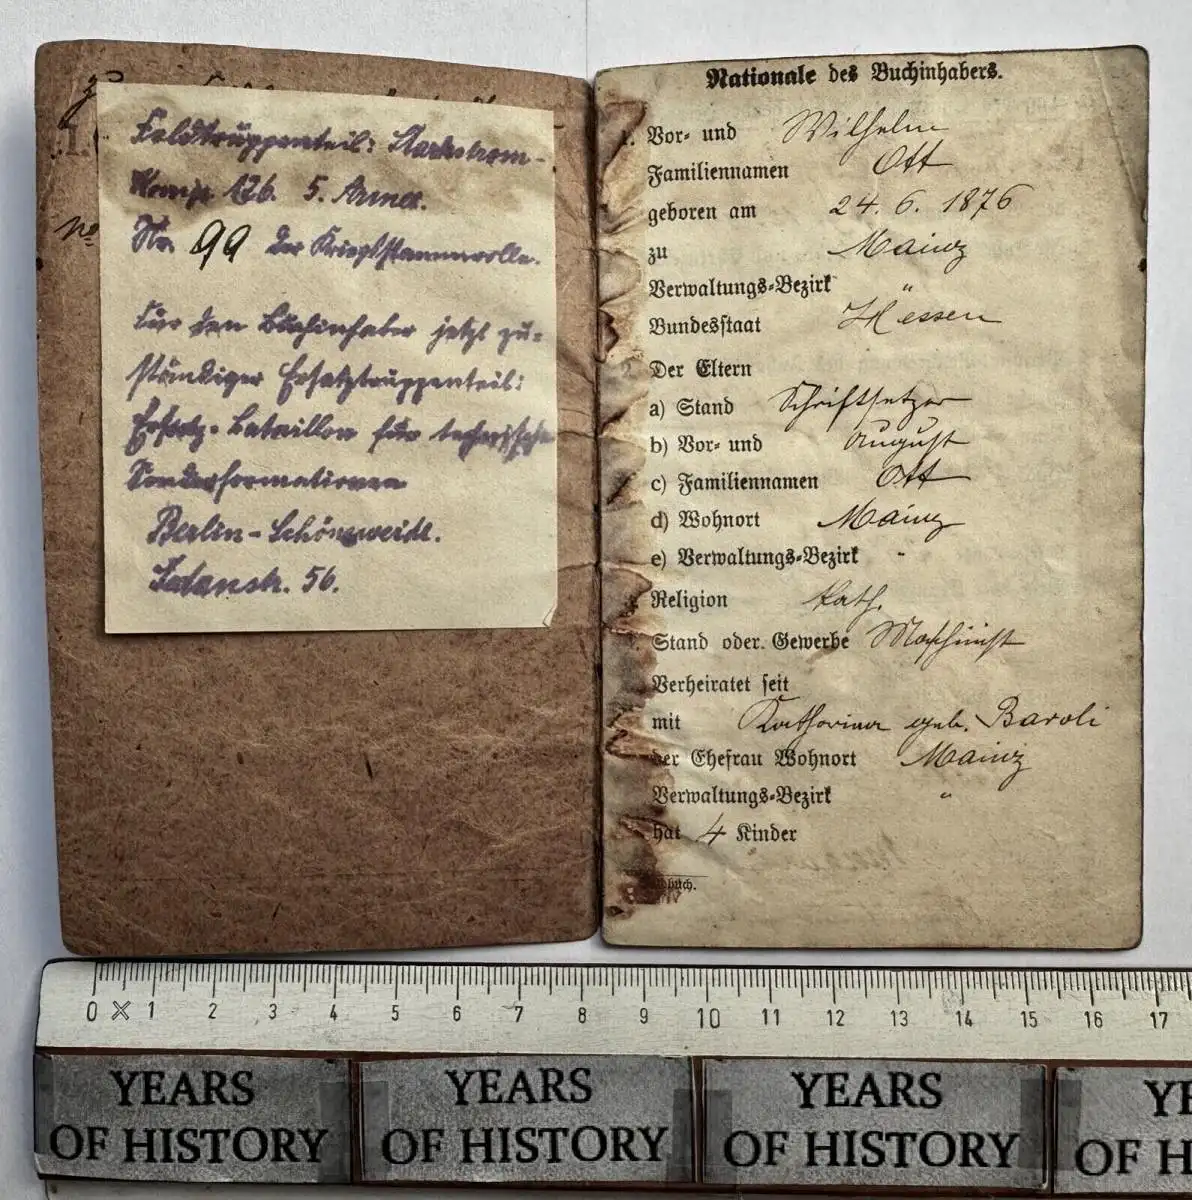 Feldtruppenteil: Starkstrom-
Komp. 176. 5. Armee.
No 99 der Kriegsstammrolle.
Für den Buchinhaber jetzt zu-
ständiger Ersatztruppenteil:
Ersatz-Bataillon für technische
Sonderformationen
Berlin-Schöneweide.
Sedanstr. 56.
Nationale des Buchinhabers.
1. Vor- und Wilhelm
Familiennamen Ott
geboren am 24. 6. 1876
zu Mainz
Verwaltungs-Bezirk "
Bundesstaat Hessen
2. Der Eltern
a) Stand Schriftsetzer
b) Vor- und August
c) Familiennamen Ott
d) Wohnort Mainz
e) Verwaltungs-Bezirk "
Religion kath.
Stand oder Gewerbe Maschinist
Verheiratet seit
mit Katharina geb. Baroli
der Ehefrau Wohnort Mainz
Verwaltungs-Bezirk "
hat 4 Kinder
0 1 2 3 4 5 6 7 8 9 10 11 12 13 14 15 16 17
YEARS OF HISTORY
YEARS OF HISTORY
YEARS OF HISTORY
YE
OF H